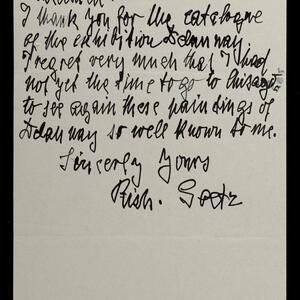 I thank you for the catalogue
of the exhibition Delaunay
I regret very much that I had
not yet the time to go to Chicago
to see again these paintings of
Delaunay so well known to me.
Sincerely Yours
Rich. Goetz